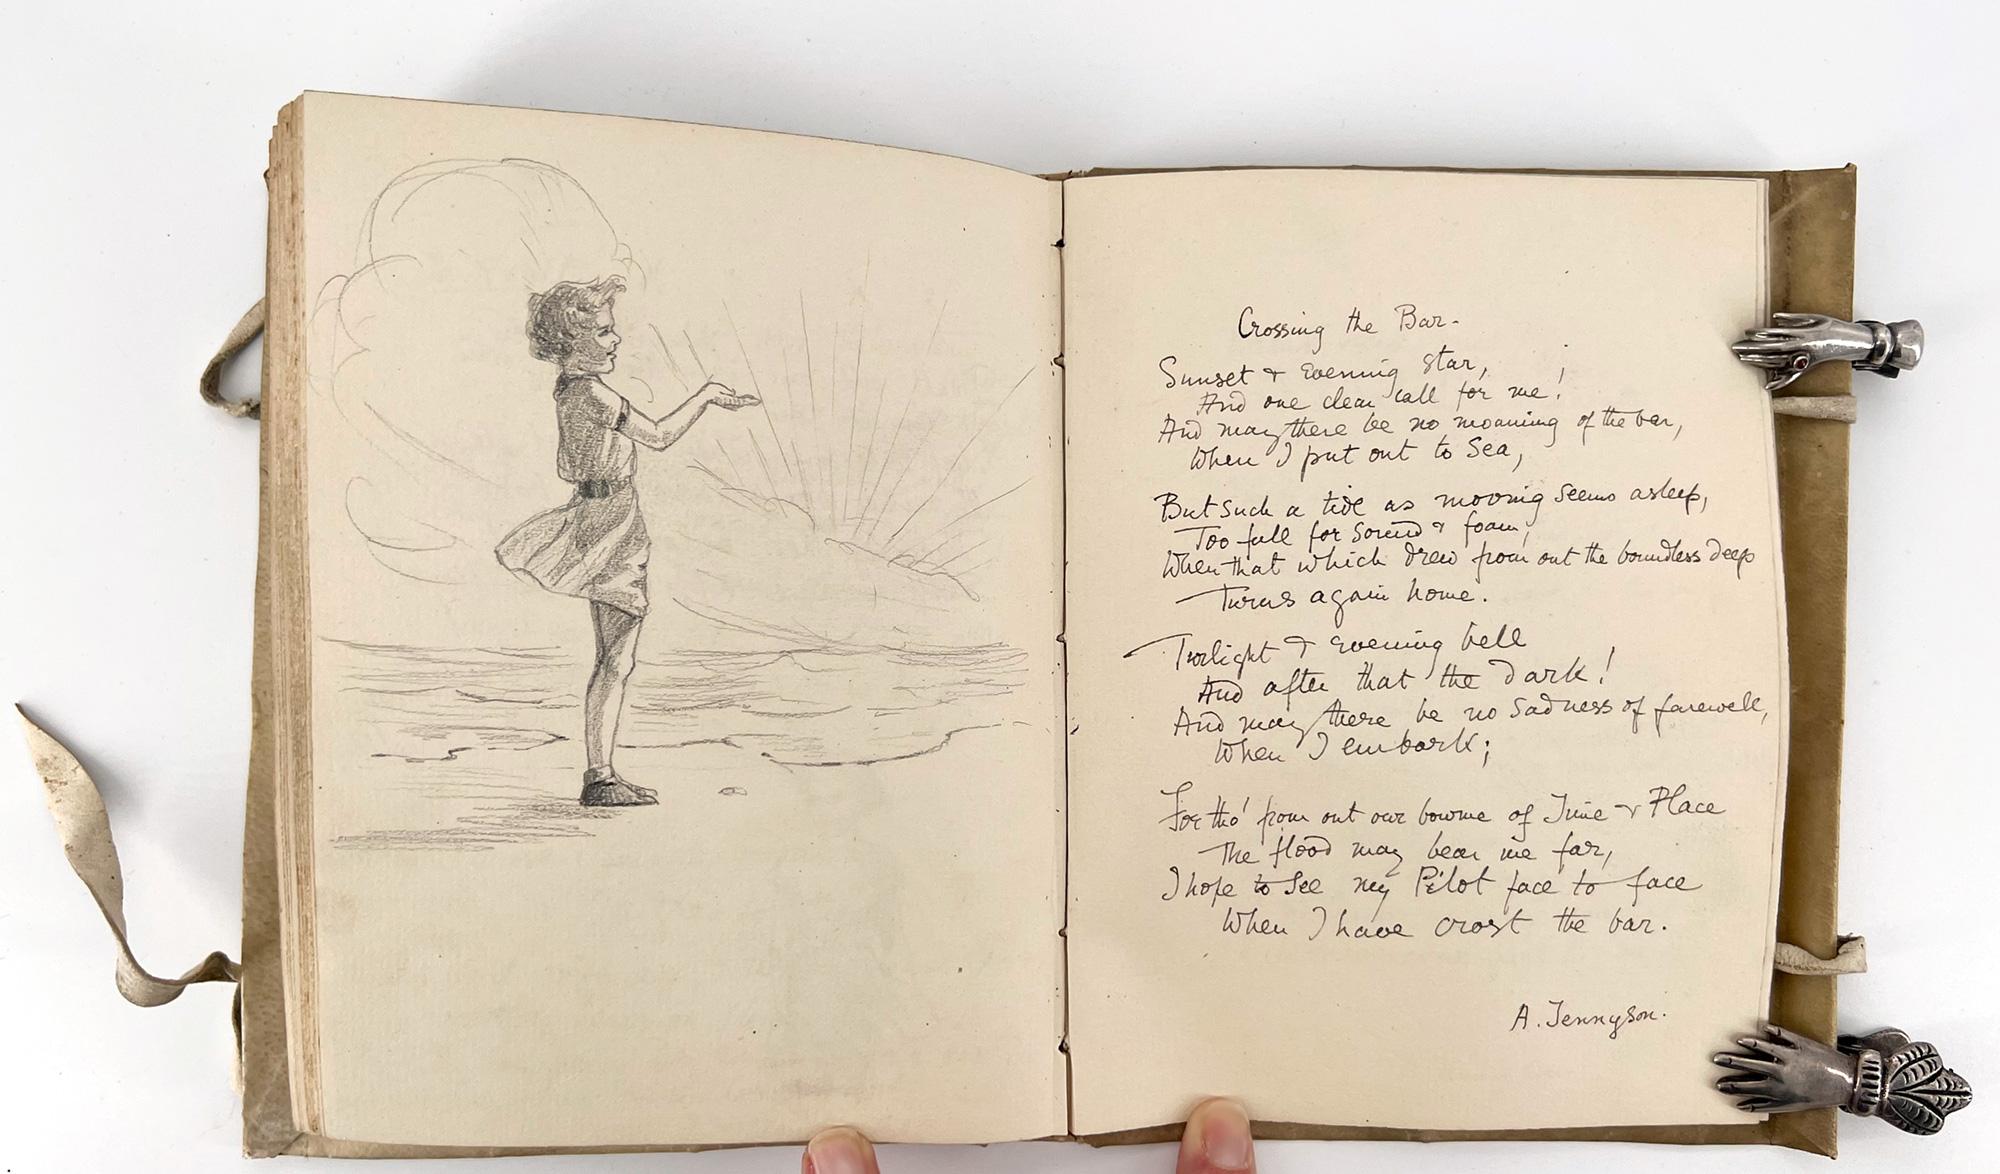 Crossing the Bar-
Sunset & evening star,
And one clear call for me!
And may there be no moaning of the bar,
When I put out to Sea,
But such a tide as moving seems asleep,
Too full for sound & foam,
When that which drew from out the boundless deep
Turns again home.
Twilight & evening bell
And after that the dark!
And may there be no sadness of farewell,
When I embark;
For tho' from out our bourne of Time & Place
The flood may bear me far,
I hope to see my Pilot face to face
When I have crost the bar.
A. Tennyson.